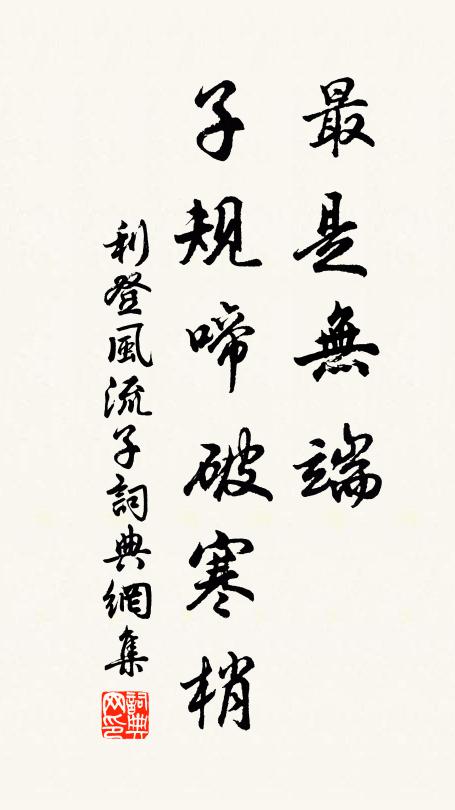 最是無端
子規啼破寒梢
利登風流子詞典網集
詞典網印